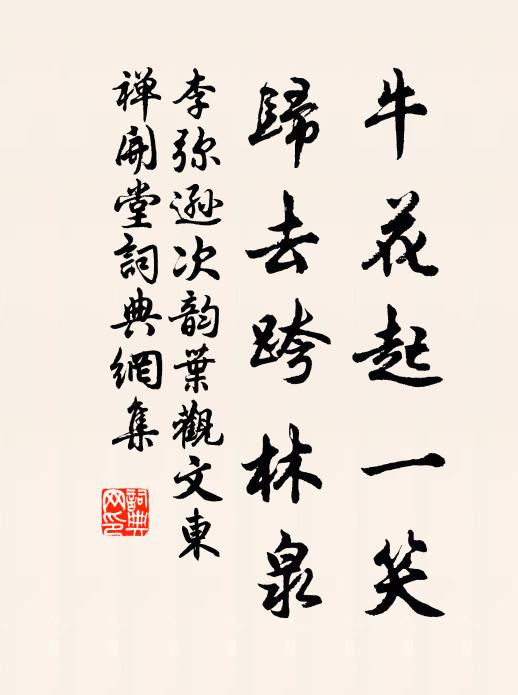 牛花起一笑
歸去跨林泉
李弥遜次韵葉觀文東
禅開堂詞典網集
詞典网印